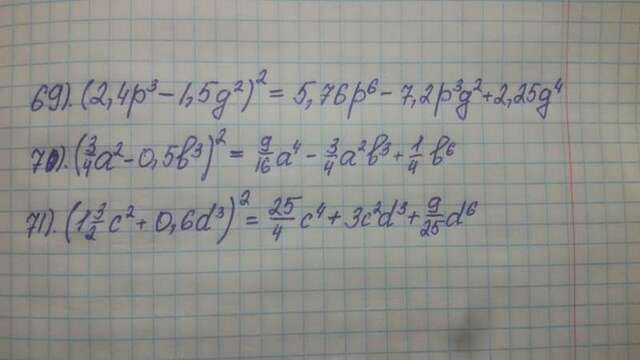 69). (2,4p³ - 1,5g²)² = 5,76p⁶ - 7,2p³g² + 2,25g⁴
70). (3/4 a² - 0,5b³)² = 9/16 a⁴ - 3/4 a²b³ + 1/4 b⁶
71). (1 3/2 c² + 0,6d³)² = 25/4 c⁴ + 3c²d³ + 9/25 d⁶